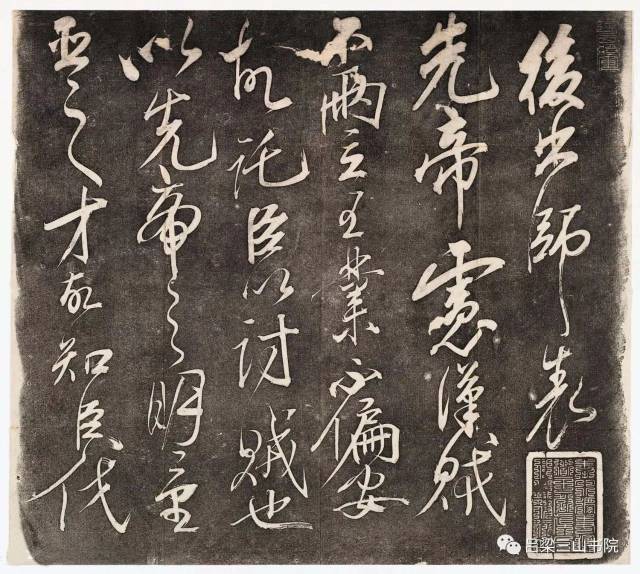 後出師表
先帝慮漢賊
不兩立王業不偏安
故託臣以討賊也
以先帝之明量
臣之才故知臣伐
吕梁三山书院